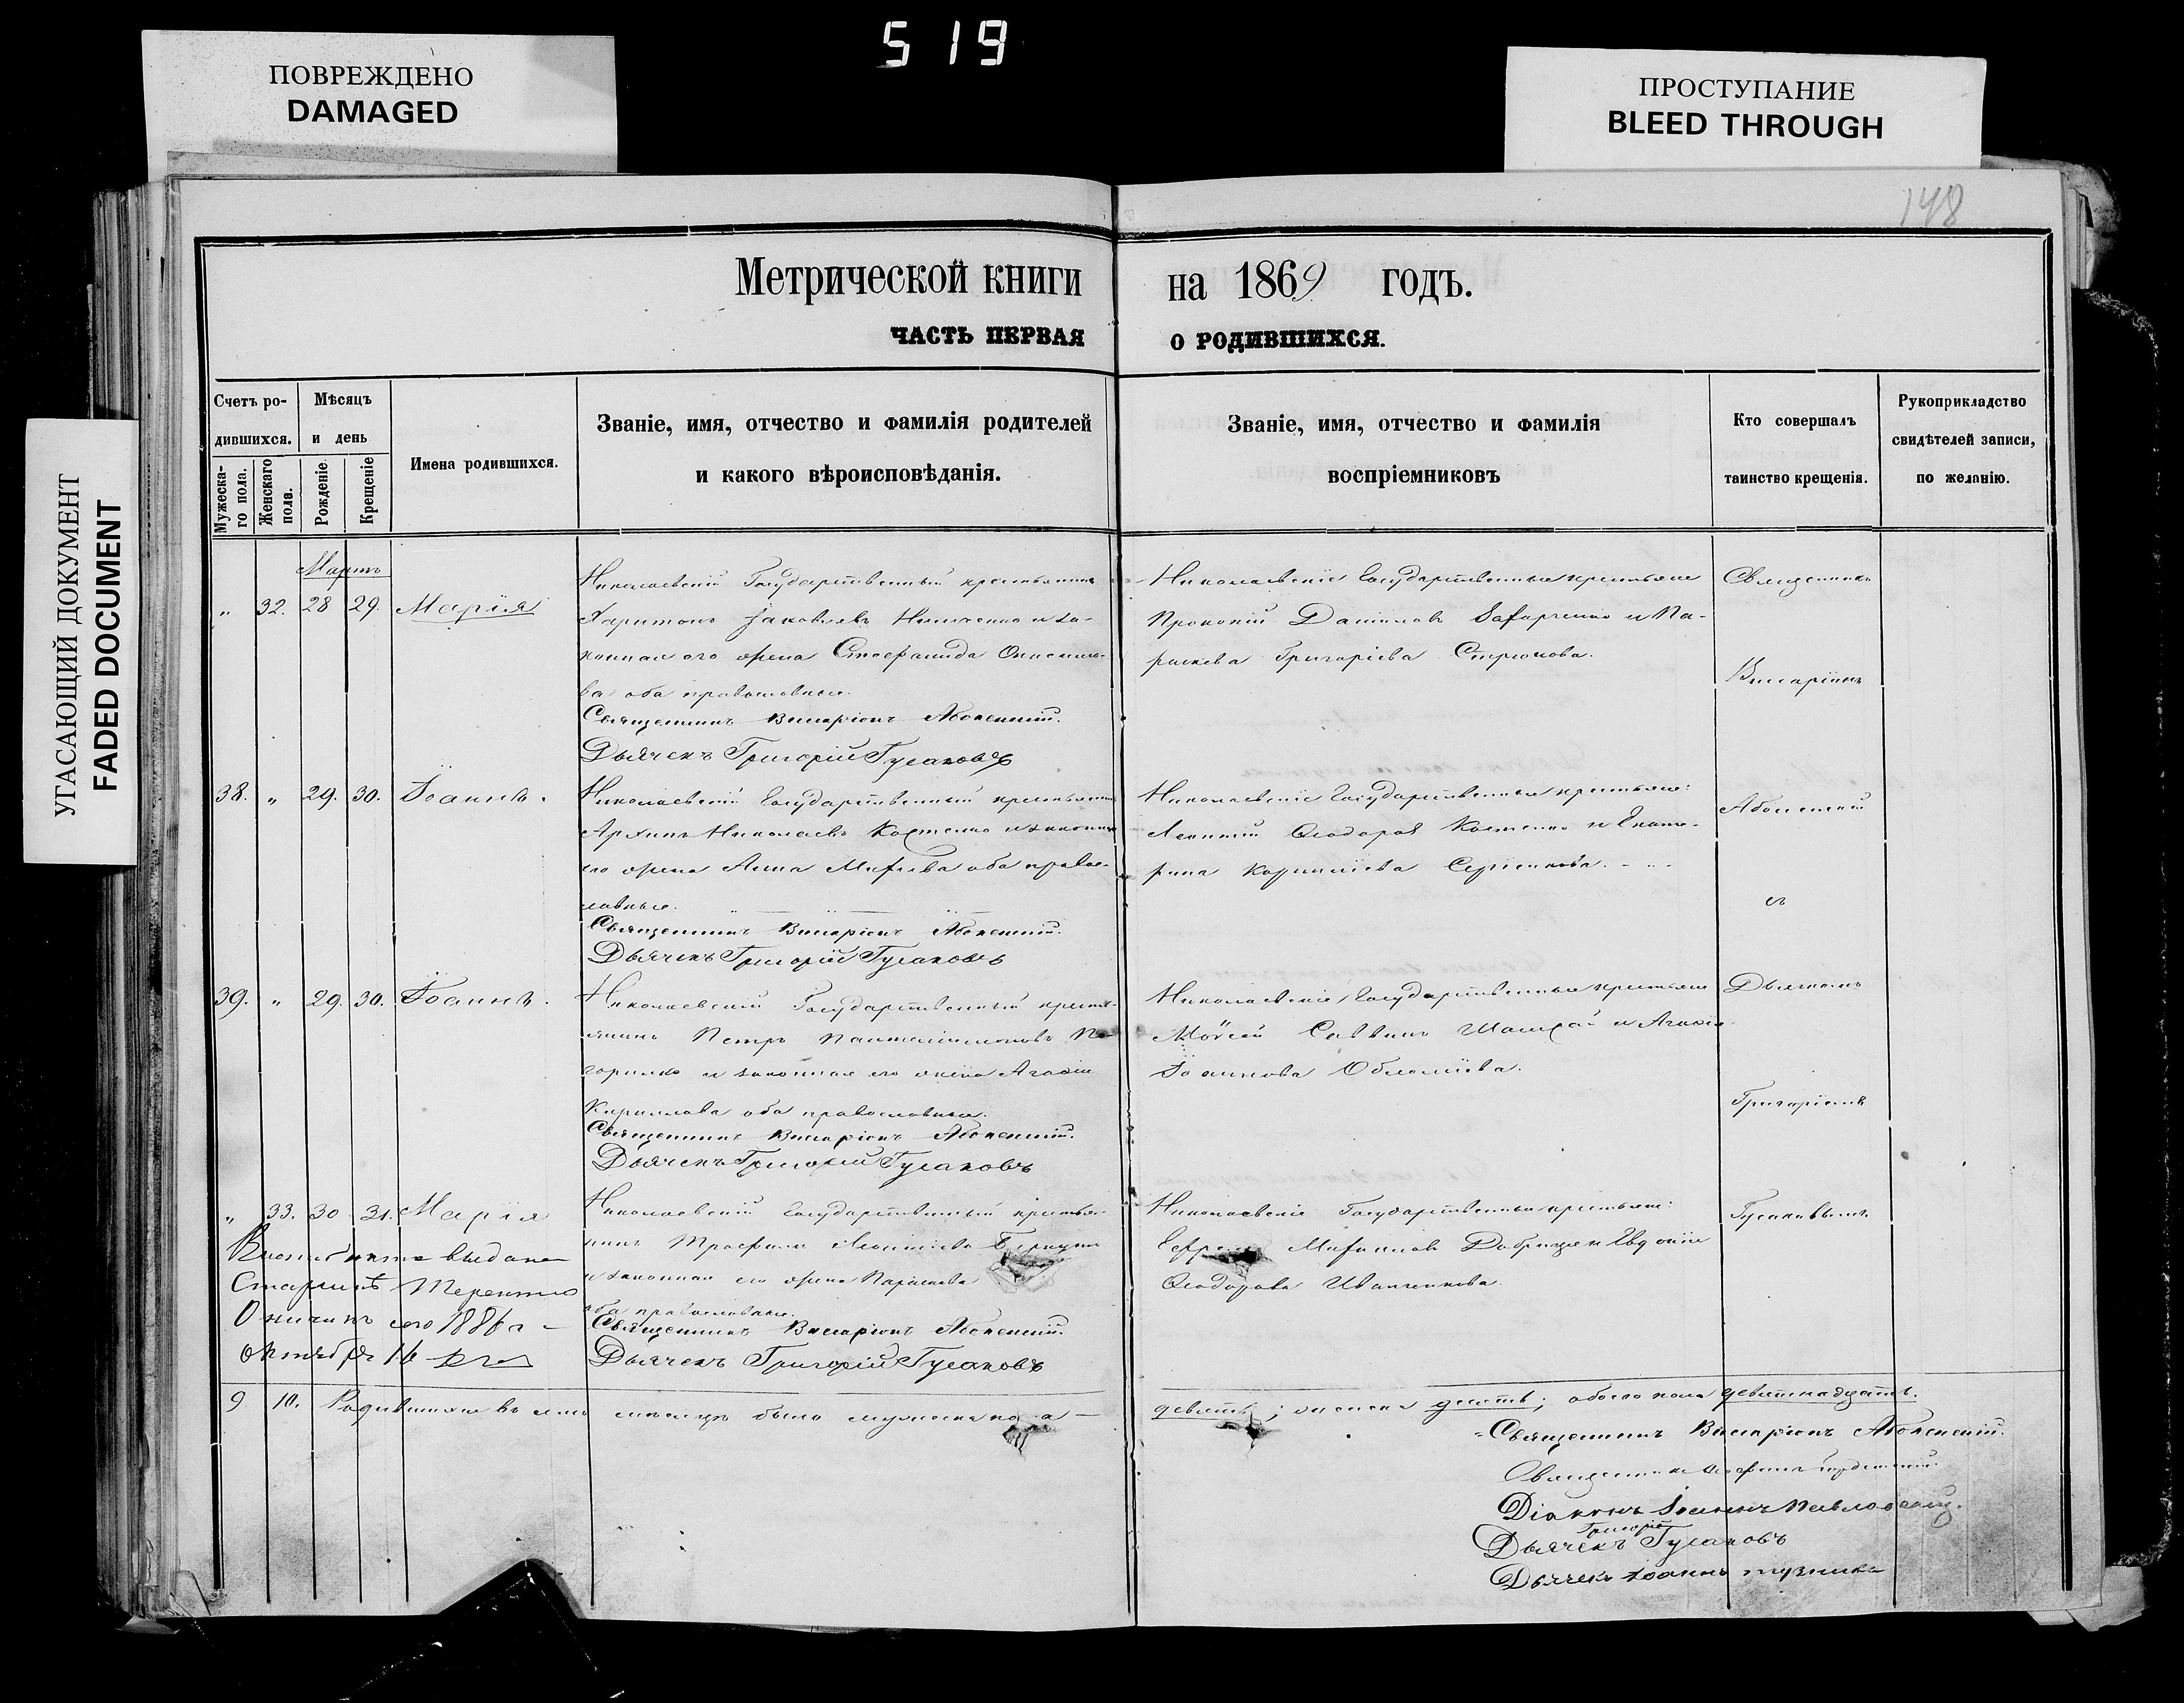 519
ПОВРЕЖДЕНО
DAMAGED
ПРОСТУПАНИЕ
BLEED THROUGH
УГАСАЮЩИЙ ДОКУМЕНТ
FADED DOCUMENT
148
Метрической книги на 1869 годъ.
ЧАСТЬ ПЕРВАЯ О РОДИВШИХСЯ.
Счетъ ро-
дившихся.
Мужеска-
го пола.
Женскаго
пола.
Мѣсяцъ
и день
Рожденіе.
Крещеніе
Имена родившихся.
Званіе, имя, отчество и фамилія родителей
и какого вѣроисповѣданія.
Званіе, имя, отчество и фамилія
воспріемниковъ
Кто совершалъ
таинство крещенія.
Рукоприкладство
свидѣтелей записи,
по желанію.
Мартъ
" 32. 28 29. Марія
Николаевскій Государственный крестьянинъ
Харитонъ Іаковлевъ и за-
конная его жена Стефанида
ва оба православные.
Священникъ Висаріонъ
Дьячекъ Григорій Гусаковъ
Николаевскіе Государственные крестьяне
Прокопій Даніиловъ и Па-
раскева Григоріева
Священникъ
Висаріонъ
38. " 29. 30. Іоаннъ.
Николаевскій Государственный крестьянинъ
Архипъ Николаевъ Костенко и законная
его жена Анна оба правос-
лавные.
Священникъ Висаріонъ
Дьячекъ Григорій Гусаковъ
Николаевскіе Государственные крестьяне:
Леонтій Ѳеодоровъ Костенко и Екате-
рина
съ
39. " 29. 30. Іоаннъ.
Николаевскій Государственный кресть-
янинъ Петръ Пантелеимоновъ
и законная его жена Агафія
Кириллова оба православные.
Священникъ Висаріонъ
Дьячекъ Григорій Гусаковъ
Николаевскіе Государственные крестьяне
Моѵсей Саввинъ и Агафія
Іоаннова
Дьячкомъ
Григоріемъ
" 33. 30 31. Марія
Николаевскій Государственный крестья-
нинъ Трофимъ Леонтіевъ
и законная его жена Параскева
оба православные.
Священникъ Висаріонъ
Дьячекъ Григорій Гусаковъ
Николаевскіе Государственные крестьяне:
и Евдокія
Ѳеодорова Иванченкова.
Гусаковымъ.
выдана
Терентію
сего 1886 г
октября 16 дня
9 10. Родившихся въ семъ мѣсяцѣ было мужеска пола -
девять; женска десять; обоего пола девятнадцать.
Священникъ Висаріонъ
Священникъ
Діаконъ Іоаннъ Павловскій.
Григорій
Дьячекъ Гусаковъ
Дьячекъ Іоаннъ